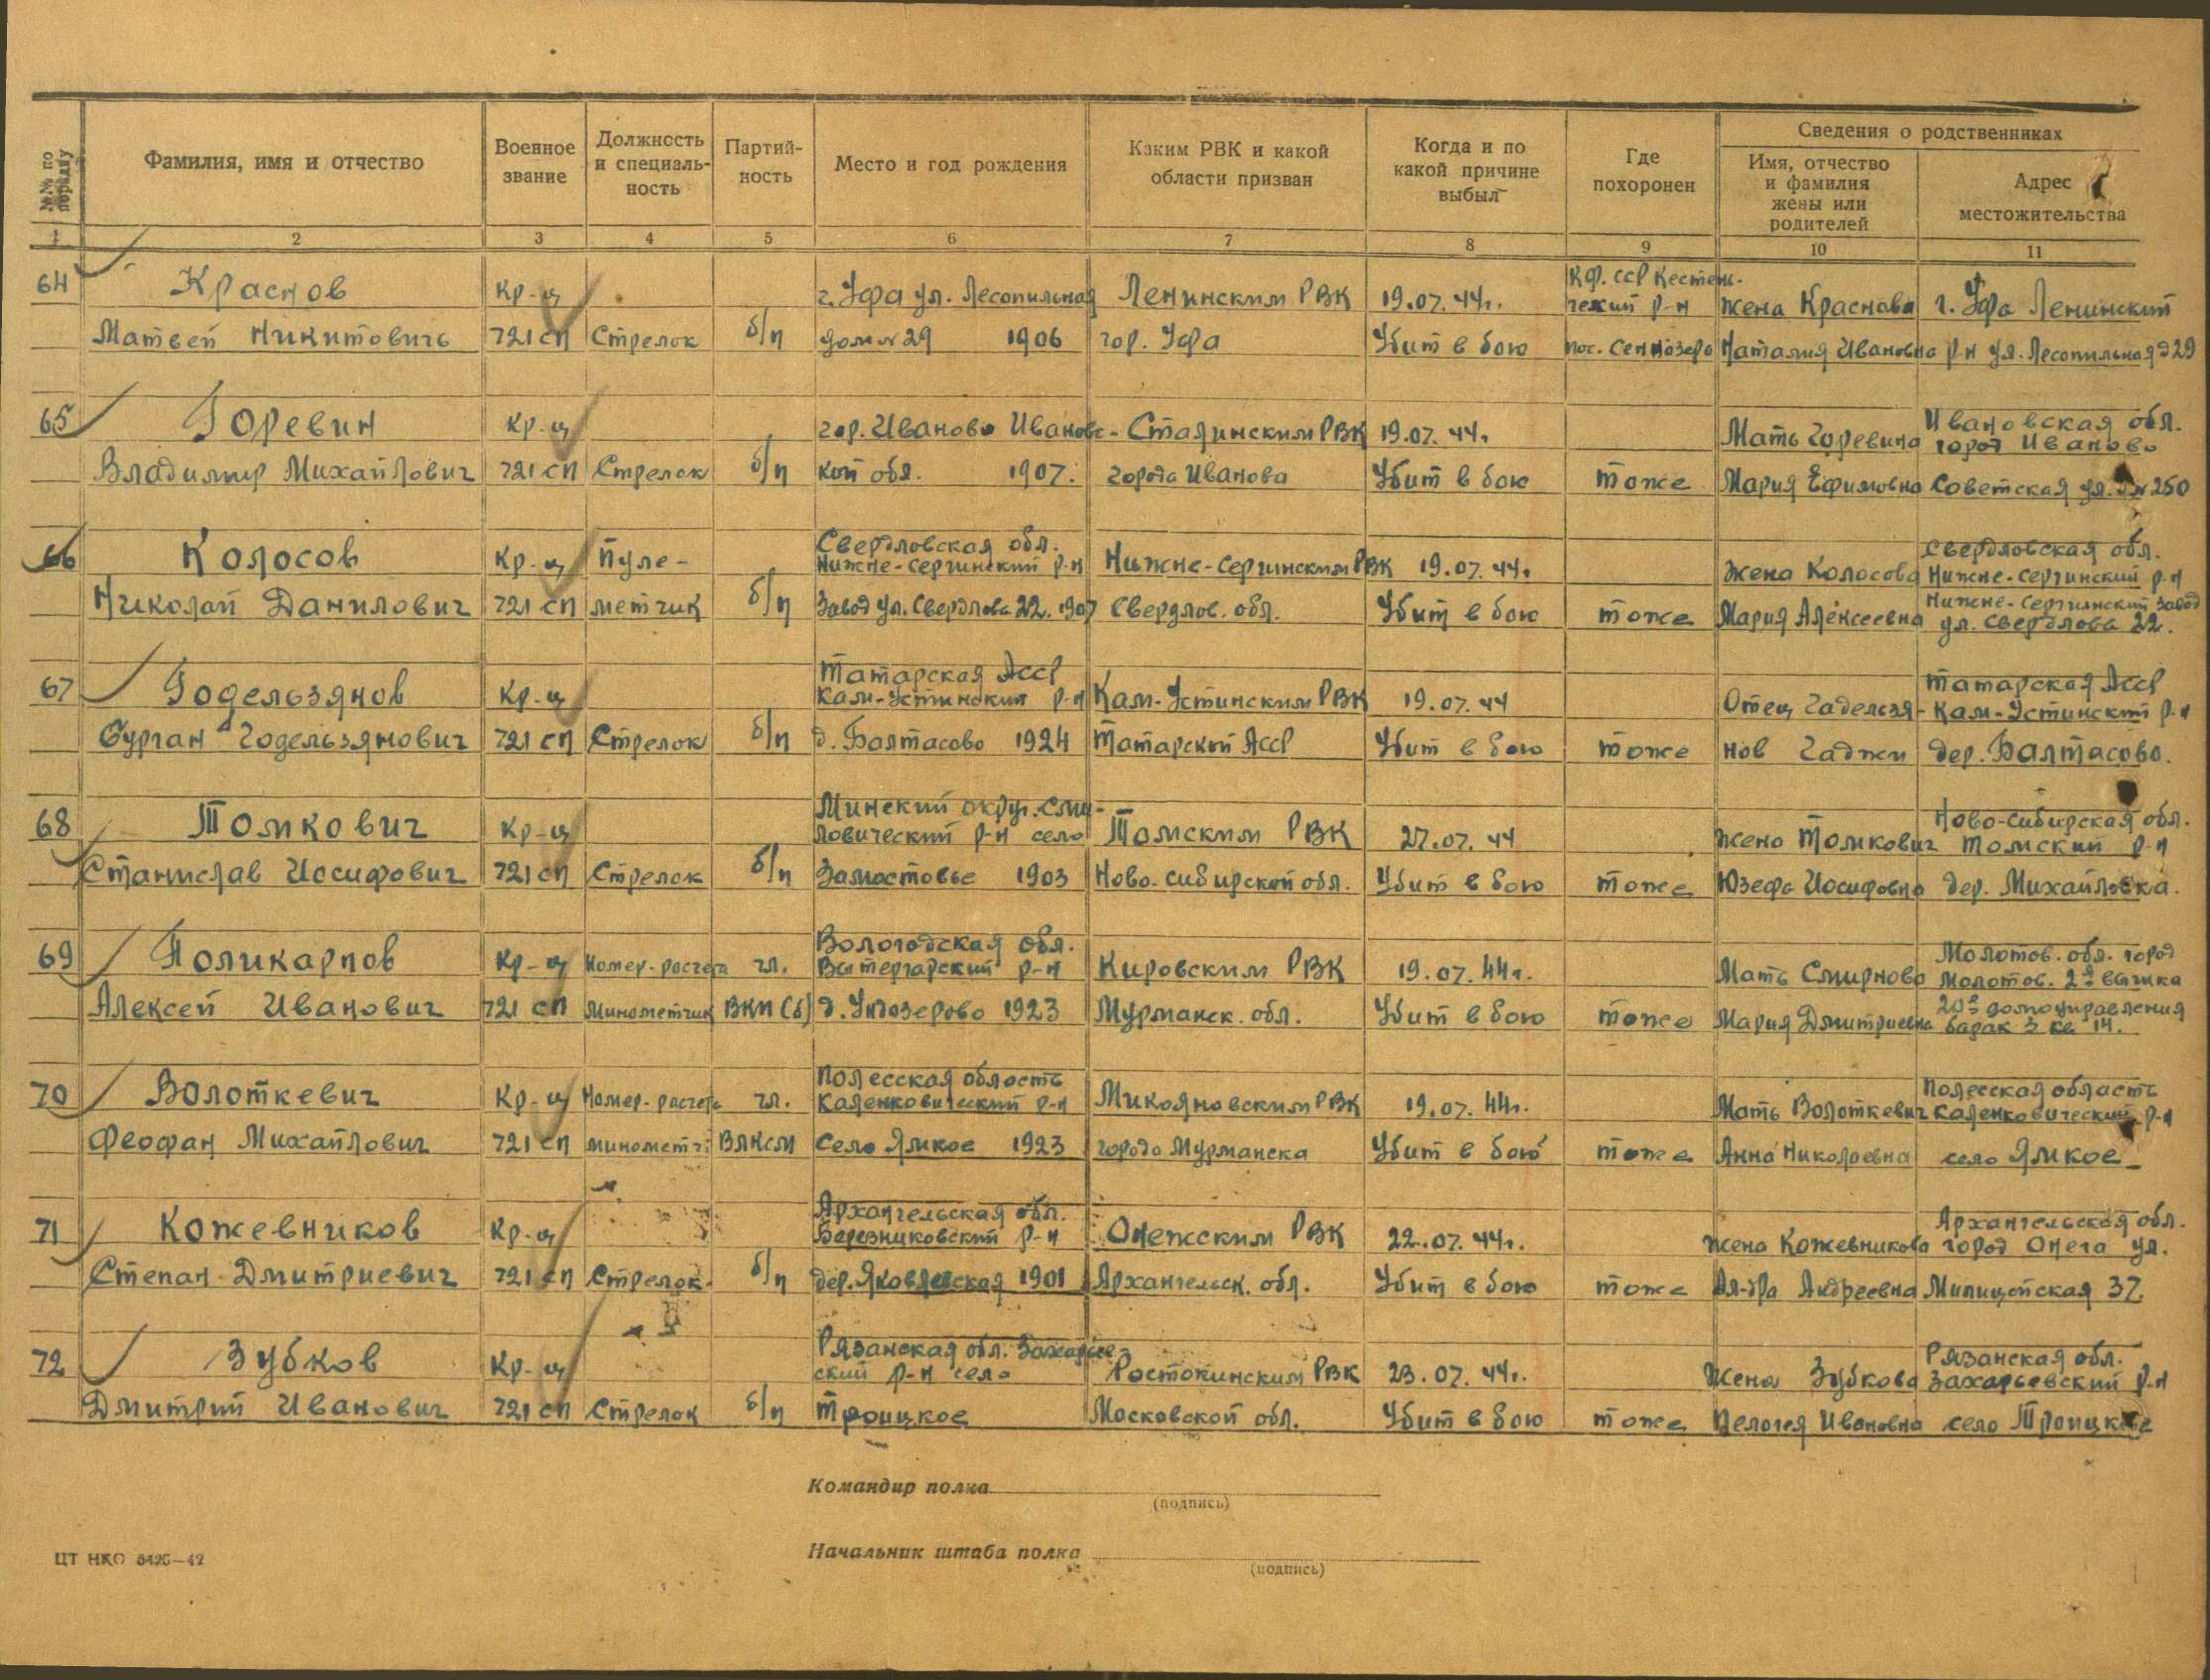 №№ по порядку
Фамилия, имя и отчество
Военное звание
Должность и специальность
Партийность
Место и год рождения
Каким РВК и какой области призван
Когда и по какой причине выбыл
Где похоронен
Сведения о родственниках
Имя, отчество и фамилия жены или родителей
Адрес местожительства
1 2 3 4 5 6 7 8 9 10 11
64 Краснов Кр-ц г. Уфа ул. Лесопильная Ленинским РВК 19.07.44г. К.Ф. ССР Кестень-гский р-н жена Краснова г. Уфа Ленинский
Матвей Никитовичь 721 сп Стрелок б/п дом № 29 1906 гор. Уфа Убит в бою пос. Сеннозеро Наталия Ивановна р-н ул. Лесопильная д 29
65 Горевин Кр-ц гор. Иваново Ивановс- Сталинским РВК 19.07.44г. Мать Горевина Ивановская обл. город Иваново
Владимир Михайлович 721 сп Стрелок б/п кой обл. 1907. города Иванова Убит в бою тоже Мария Ефимовна Советская ул. 250
66 Колосов Кр-ц Пуле- Свердловская обл. Нижне-Сергинский р-н Нижне-Сергинским РВК 19.07.44г. жена Колосова Свердловская обл. Нижне-Сергинский р-н
Николай Данилович 721 сп метчик б/п Завод ул. Свердлова 22. 1907 Свердлов. обл. Убит в бою тоже Мария Алексеевна Нижне-Сергинский завод ул. Свердлова 22.
67 Годельзянов Кр-ц Татарская АССР Кам-Устинский р-н Кам-Устинским РВК 19.07.44 Отец Гадельзя- Татарская АССР Кам-Устинский р-н
Бурган Годельзянович 721 сп Стрелок б/п д. Балтасово 1924 Татарской АССР Убит в бою тоже нов Гаджи дер. Балтасово.
68 Томкович Кр-ц Минский округ. Сми- ловический р-н село Томским РВК 27.07.44 жена Томкович Ново-Сибирская обл. Томский р-н
Станислав Иосифович 721 сп Стрелок б/п Замостовье 1903 Ново-Сибирской обл. Убит в бою тоже Юзефа Иосифовна дер. Михайловка.
69 Поликарпов Кр-ц Номер-расчета чл. Вологодская обл. Вытегарский р-н Кировским РВК 19.07.44г. Мать Смирнова Молотов. обл. город Молотов. 2я вышка
Алексей Иванович 721 сп Минометчик ВКП(б) д. Ундозерово 1923 Мурманск. обл. Убит в бою тоже Мария Дмитриевна 20е домоуправления барак 3 кв 14.
70 Волоткевич Кр-ц Номер-расчета чл. Полесская область Каленковический р-н Микояновским РВК 19.07.44г. Мать Волоткевич Полесская область Каленковический р-н
Феофан Михайлович 721 сп минометч ВЛКСМ Село Ямкое 1923 города Мурманска Убит в бою тоже Анна Николаевна село Ямкое
71 Кожевников Кр-ц Архангельская обл. Березниковский р-н Онежским РВК 22.07.44г. жена Кожевникова Архангельская обл. город Онега ул.
Степан Дмитриевич 721 сп Стрелок б/п дер. Яковлевская 1901 Архангельск. обл. Убит в бою тоже Андреевна Милицейская 37.
72 Зубков Кр-ц Рязанская обл. Захарьев- ский р-н село Ростокинским РВК 23.07.44г. Жена Зубкова Рязанская обл. Захарьевский р-н
Дмитрий Иванович 721 сп Стрелок б/п Троицкое Московской обл. Убит в бою тоже Пелогея Ивановна село Троицкое
Командир полка
(подпись)
Начальник штаба полка
(подпись)
ЦТ НКО 6426—42